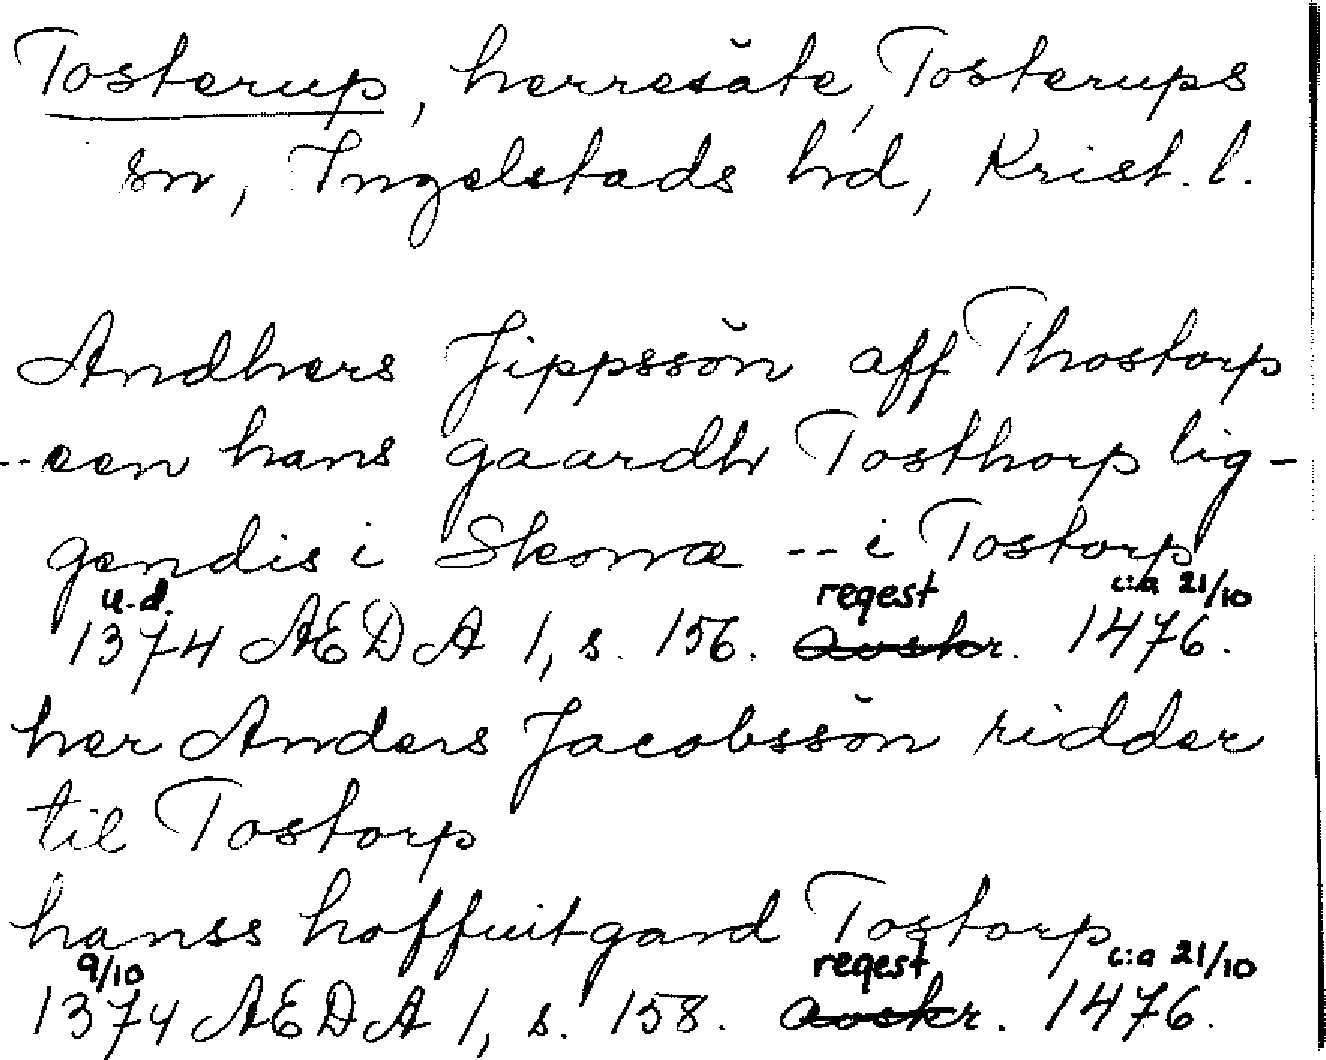 Tosterup, herresäte, Tosterups
sn, Ingelstads hd, Krist. l.
Andhers Jippssön aff Thostorp
--een hans gaardh Tosthorp lig-
gendis i Skonæ -- i Tostorp
u.d. regest c:a 21/10
1374 ÆDA 1, s. 156. avskr. 1476.
her Anders Jacobssön ridder
til Tostorp
hanss hoffuitgard Tostorp
9/10 regest c:a 21/10
1374 ÆDA 1, s. 158. avskr. 1476.